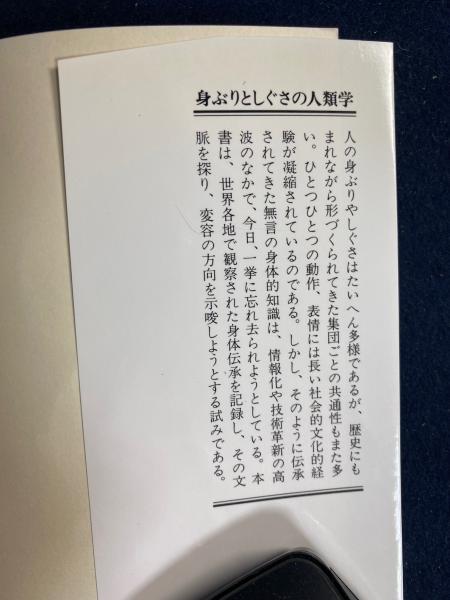 身ぶりとしぐさの人類学
人の身ぶりやしぐさはたいへん多様であるが、歴史にも
まれながら形づくられてきた集団ごとの共通性もまた多
い。ひとつひとつの動作、表情には長い社会的文化的経
験が凝縮されているのである。しかし、そのように伝承
されてきた無言の身体的知識は、情報化や技術革新の高
波のなかで、今日、一挙に忘れ去られようとしている。本
書は、世界各地で観察された身体伝承を記録し、その文
脈を探り、変容の方向を示唆しようとする試みである。